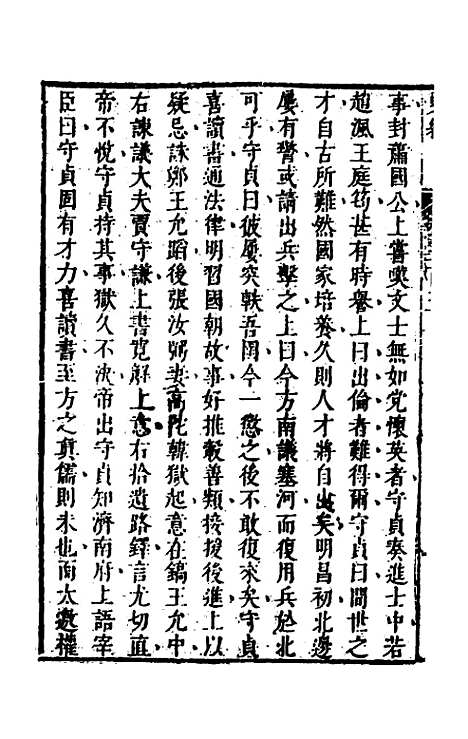 事封蕭國公上嘗嘆文士無如党懷英者守貞奏進士中若
趙渢王庭筠甚有時譽上曰出倫者難得爾守貞曰間世之
才自古所難然國家培養久則人才將自出矣明昌初北邊
屢有警或請出兵擊之上曰今方南議塞河而復用兵於北
可乎守貞曰彼屢突軼吾圉今一懲之後不敢復來矣守貞
喜讀書通法律明習國朝故事好推轂善類接援後進上以
疑忌誅鄭王允蹈後張汝弼妻高陀斡獄起意在鎬王允中
右諫議大夫賈守謙上書寬解上意右拾遺路鐸言尤切直
帝不悅守貞持其事獄久不決帝出守貞知濟南府上語宰
臣曰守貞固有才力喜讀書至方之眞儒則未也而太邀權